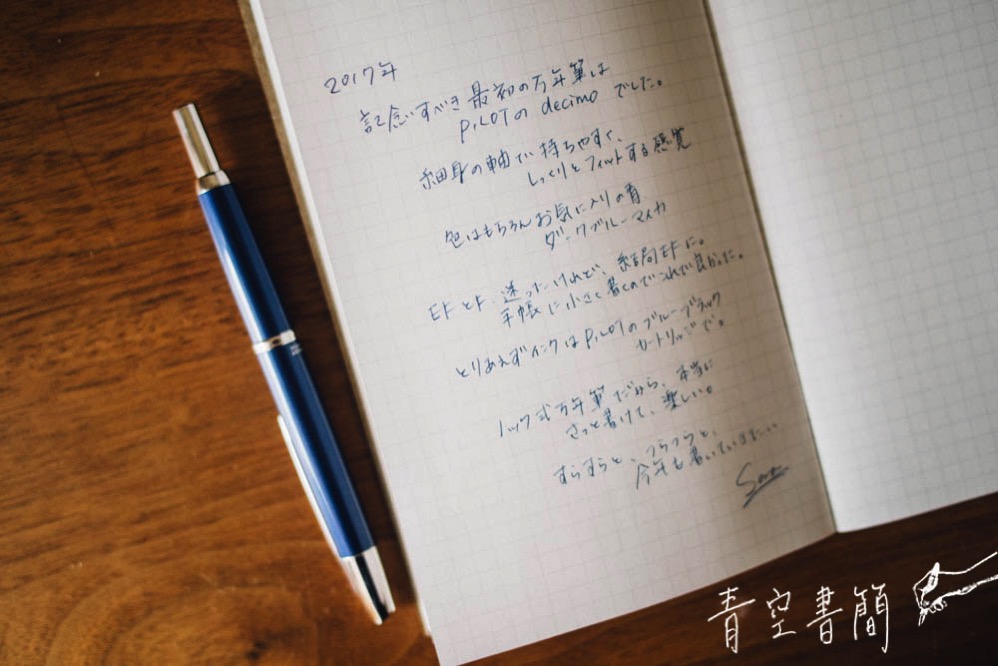 2017年
記念すべき最初の万年筆は
PILOTの decimo でした。
細身の軸で、持ちやすく、
しっくりとフィットする感覚
色はもちろんお気に入りの青
ダークブルーマイカ
EFとF、迷ったけれど、結局EFに。
手帳に小さく書くのでこれで良かった。
とりあえずインクはPILOTのブルーブラック
カートリッジで。
ノック式万年筆だから、本当に
さっと書けて、楽しい。
すらすらと、つらつらと、
今年も書いていきたい
青空書簡